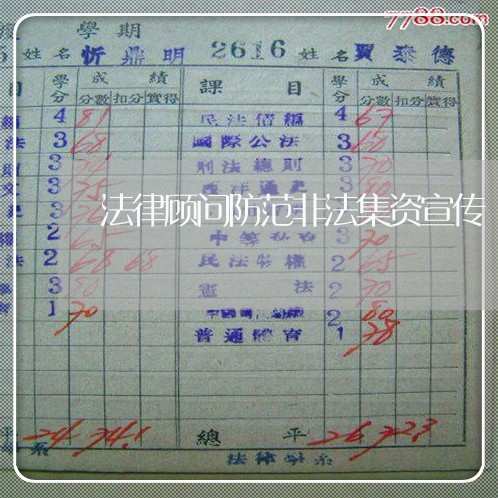 7788.com
學期
姓名 忻鼎明 2616 姓名 賈泰德
目 學分 成績 課目 學分 成績
分數 扣分 實得 分數 扣分 實得
4 81 民法債編 4 67
法 3 68 國際公法 3 60
3 刑法總則 3 70
文 3 75 西洋通史 3
2 中等 3 70
法 2 68 68 民法物權 2 65
3 80 憲法 2 70
1 70 2 80
普通體育 1 78
平 24 74.1 總平 26 72.3
系 法律學系
法律顾问防范非法集资宣传